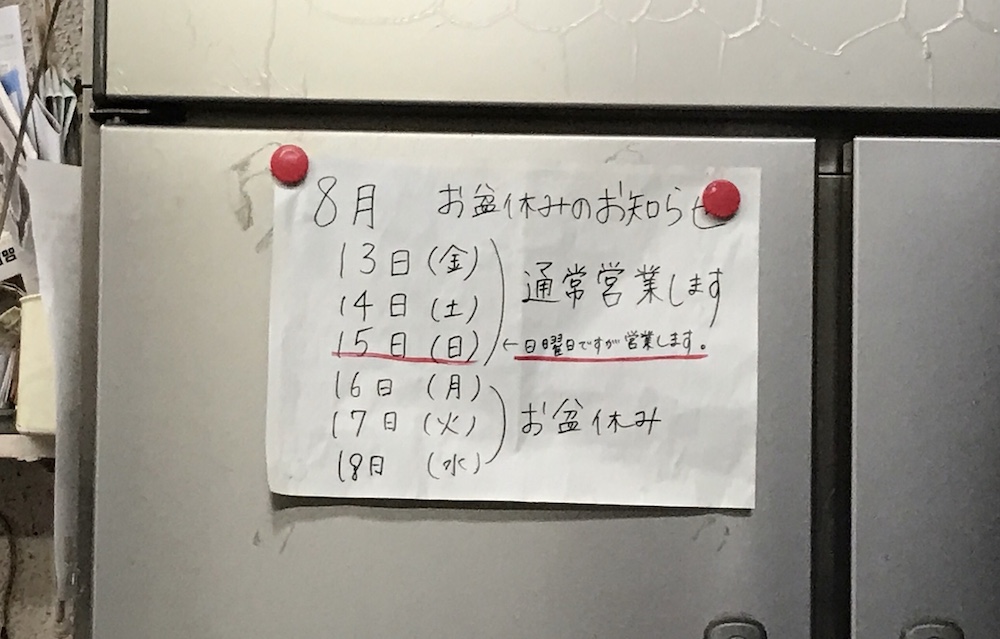 8月 お盆休みのお知らせ
13日(金)
14日(土)
通常営業します
15日(日)
←日曜日ですが営業します。
16日(月)
17日(火)
お盆休み
18日(水)